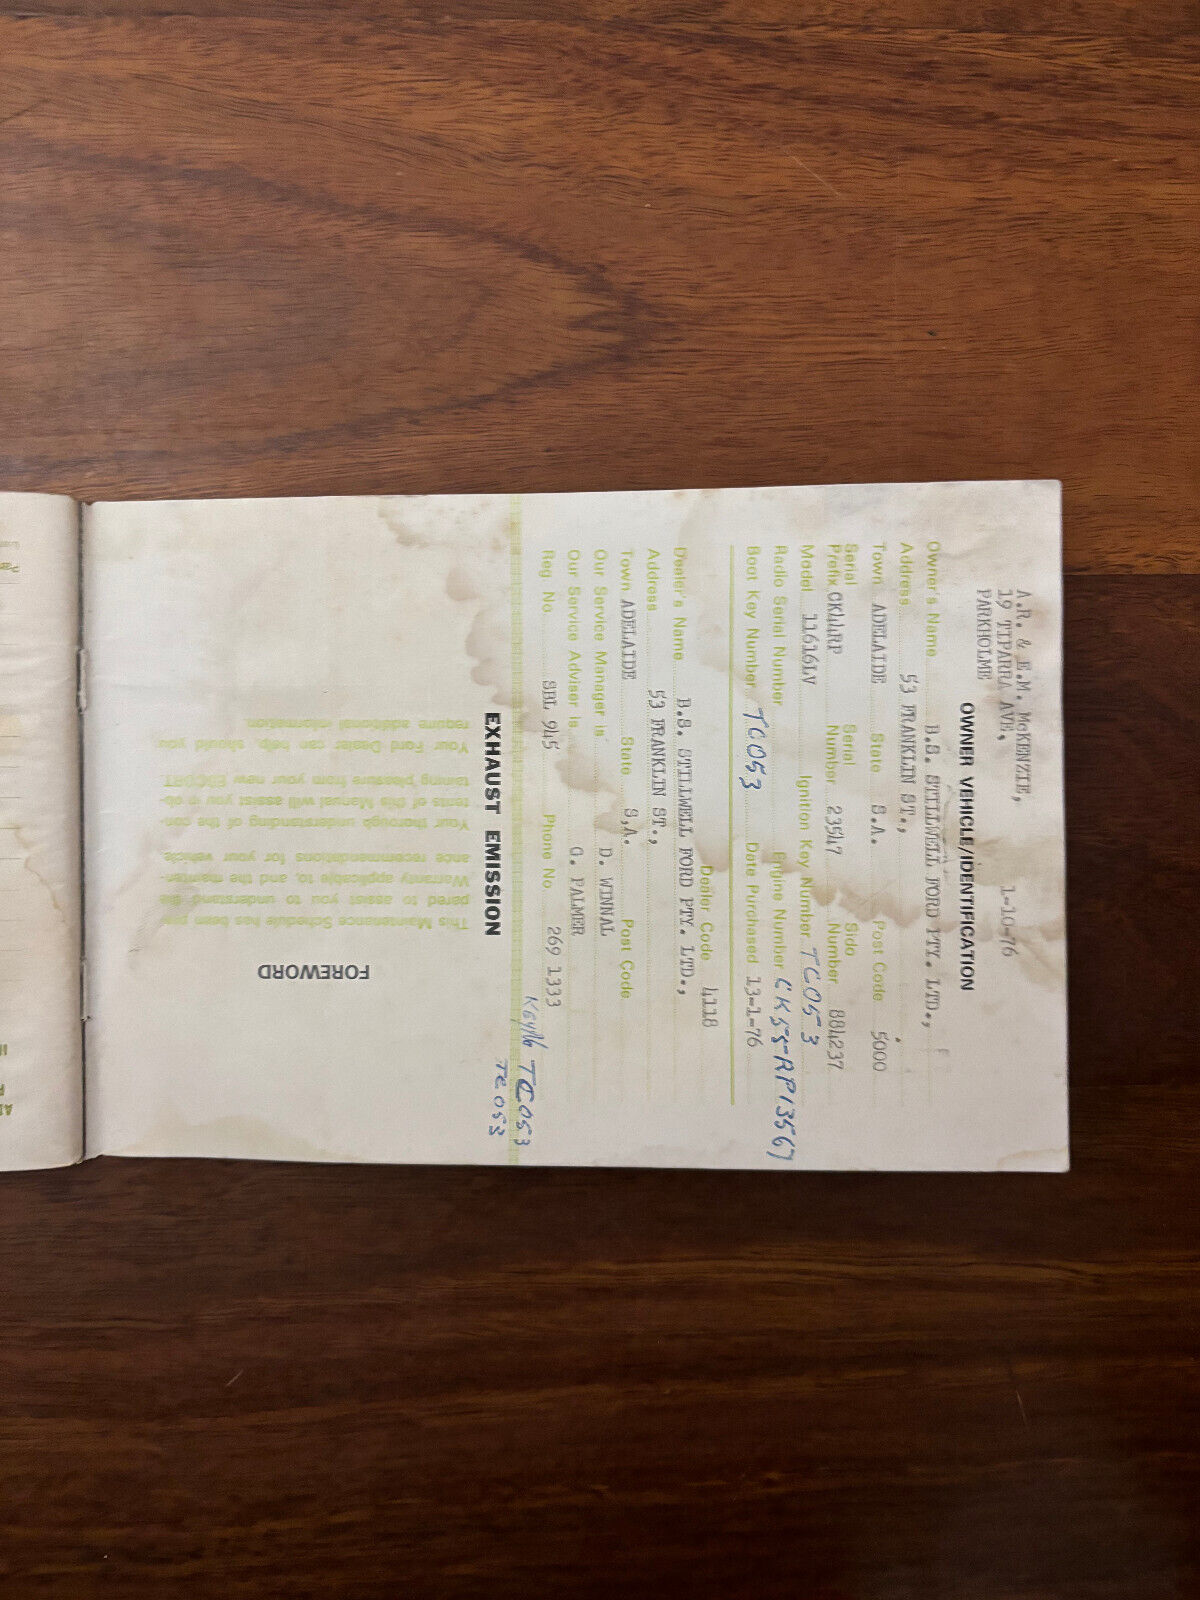 A.R. & E.M. McKENZIE,
19 TIPARRA AVE, 1-10-76
PARKHOLME
OWNER VEHICLE/IDENTIFICATION
Owner's Name B.S. STILLWELL FORD PTY. LTD.,
Address 53 FRANKLIN ST.,
Town ADELAIDE State S.A. Post Code 5000
Serial Prefix CK44RP Serial Number 23547 Sido Number 884237
Model 11616LV Ignition Key Number TC053
Radio Serial Number Engine Number CK55-RP13567
Boot Key Number TC053 Date Purchased 13-1-76
Dealer Code 4118
Dealer's Name B.S. STILLWELL FORD PTY. LTD.,
Address 53 FRANKLIN ST.,
Town ADELAIDE State S.A. Post Code
Our Service Manager is D. WINNAL
Our Service Adviser is G. PALMER
Reg No. SBL 945 Phone No. 269 1333
TC053
TC053
EXHAUST EMISSION
FOREWORD
This Maintenance Schedule has been pre-
pared to assist you to understand the
Warranty applicable to, and the mainten-
ance recommendations for your vehicle.
Your thorough understanding of the con-
tents of this Manual will assist you in ob-
taining pleasure from your new ESCORT.
Your Ford Dealer can help, should you
require additional information.